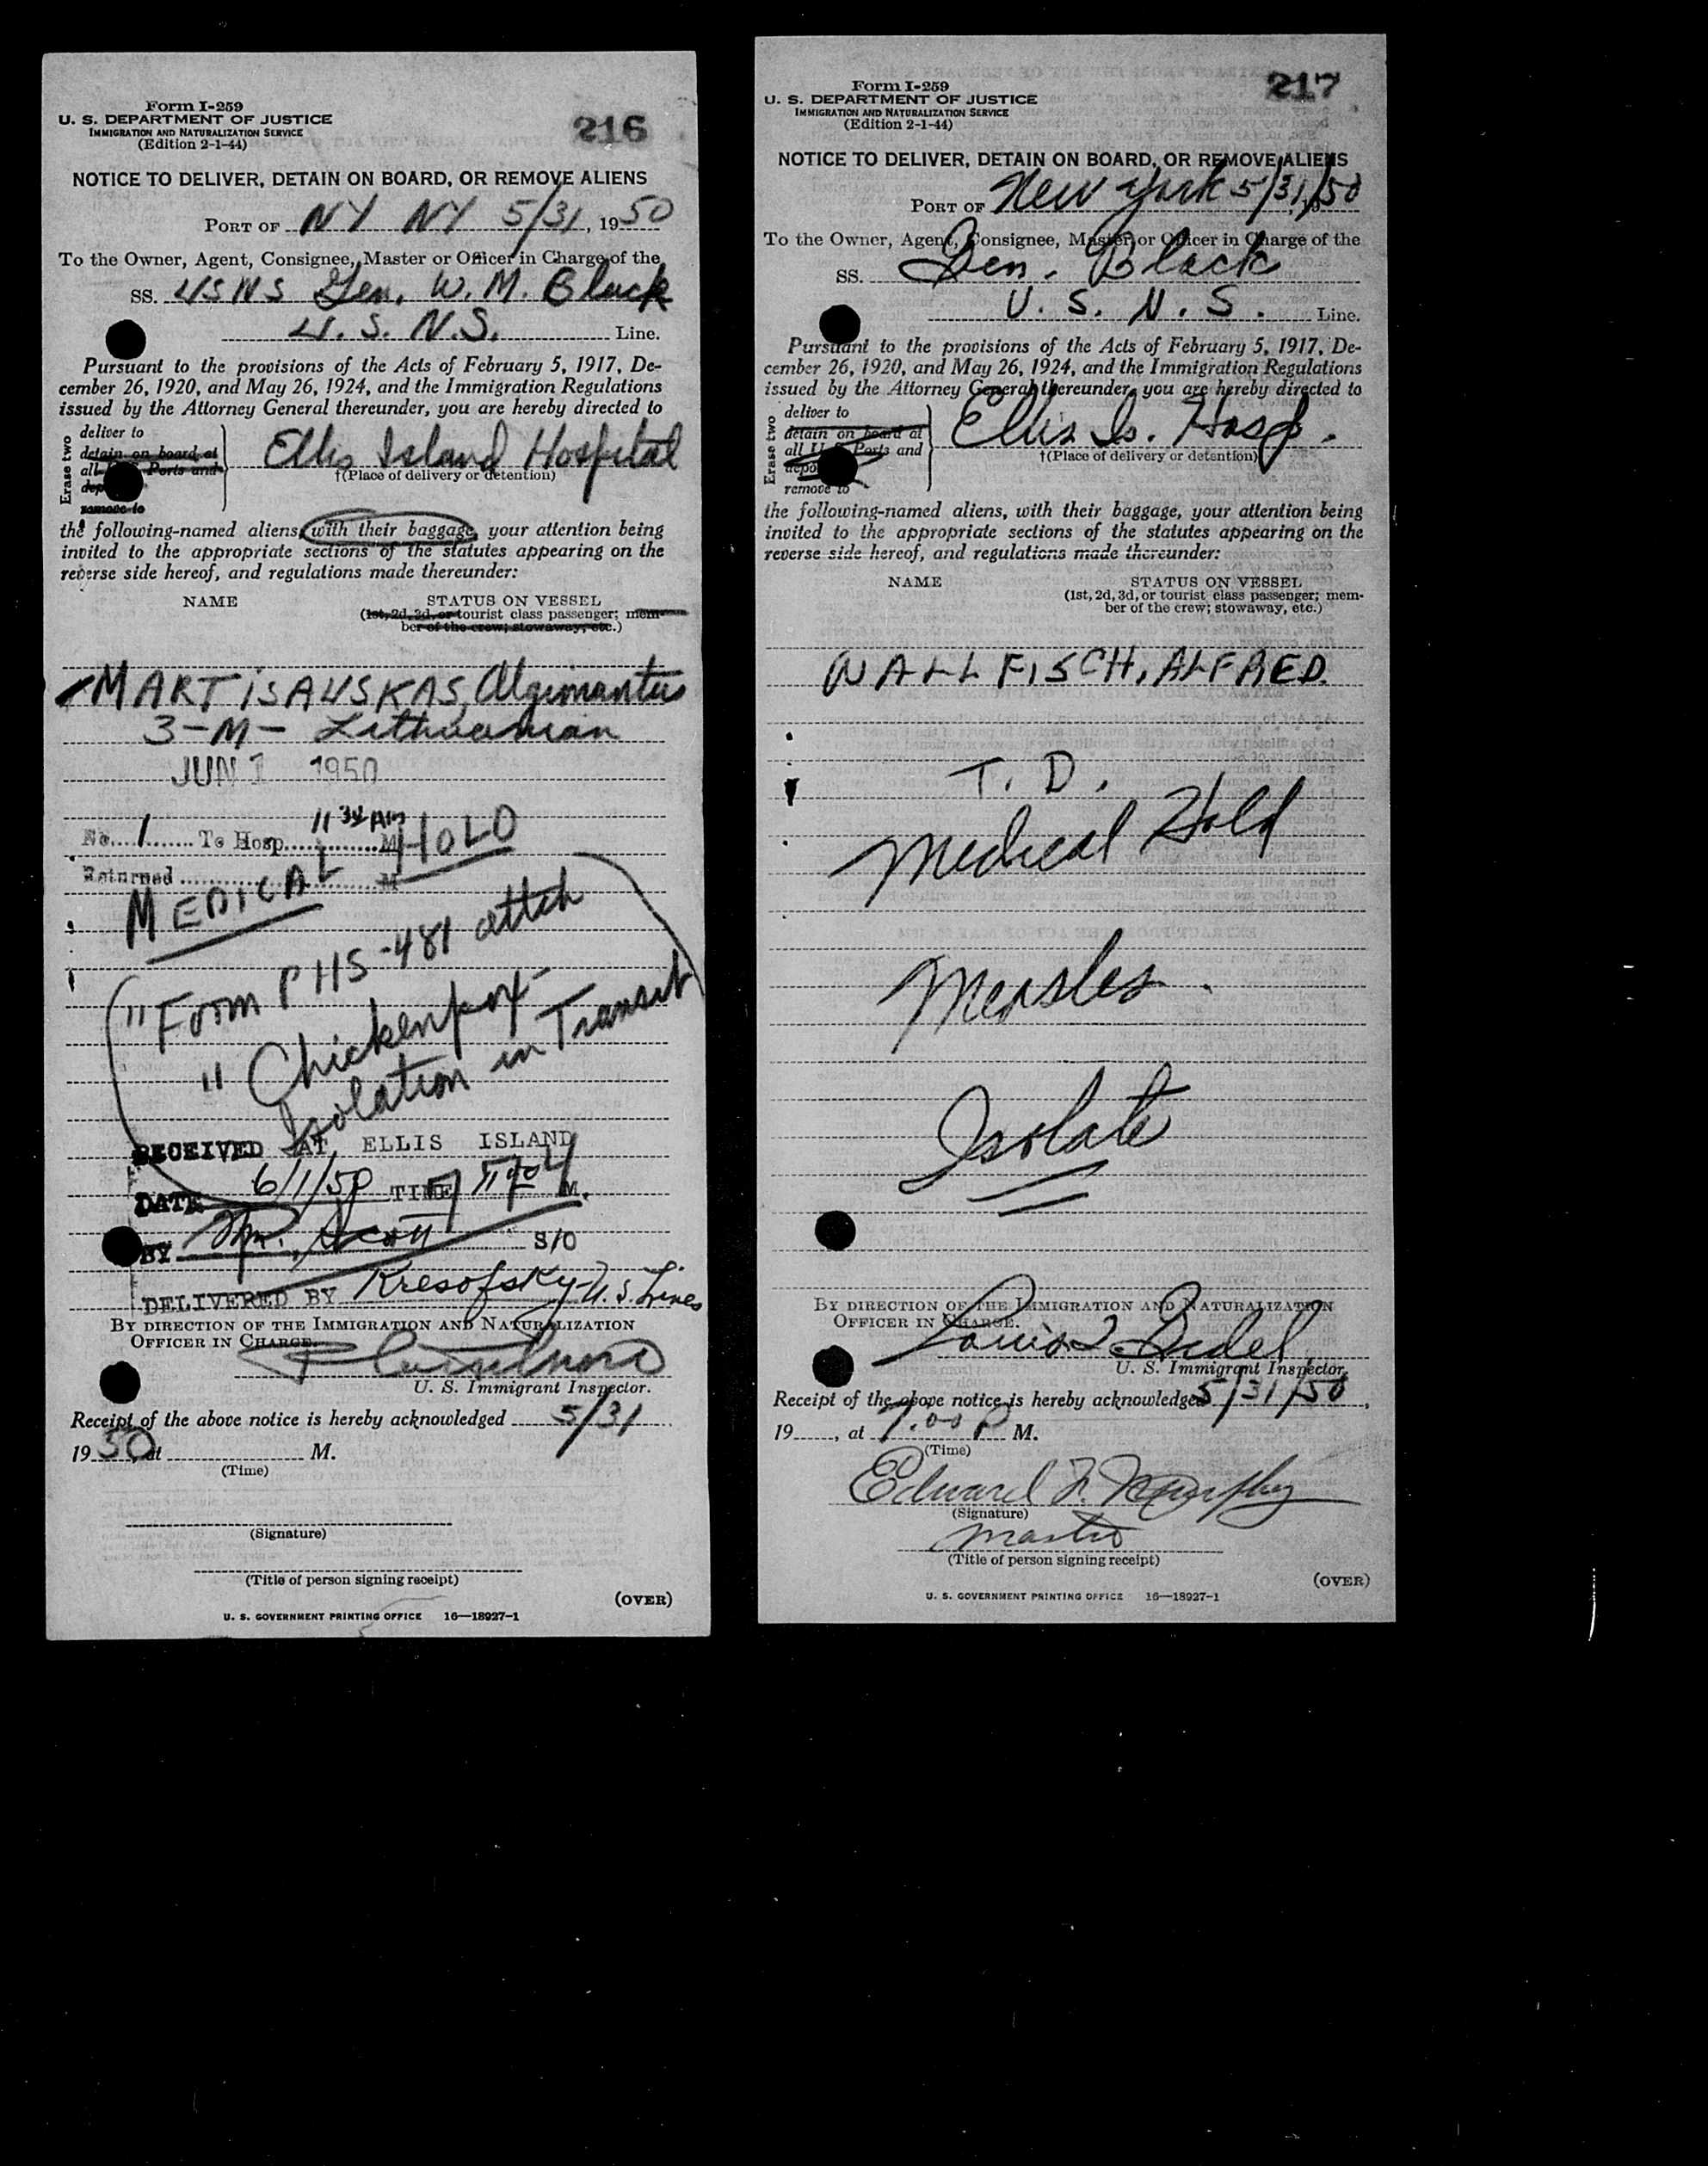 Form I-259
U. S. DEPARTMENT OF JUSTICE
IMMIGRATION AND NATURALIZATION SERVICE
(Edition 2-1-44)
216
NOTICE TO DELIVER, DETAIN ON BOARD, OR REMOVE ALIENS
PORT OF NY NY 5/31, 1950
To the Owner, Agent, Consignee, Master or Officer in Charge of the
SS. USNS Gen. W. M. Black
U. S. N.S. Line.
Pursuant to the provisions of the Acts of February 5, 1917, De-
cember 26, 1920, and May 26, 1924, and the Immigration Regulations
issued by the Attorney General thereunder, you are hereby directed to
Erase two
deliver to
detain on board at
all Ports and
remove to
Ellis Island Hospital
†(Place of delivery or detention)
the following-named aliens, with their baggage, your attention being
invited to the appropriate sections of the statutes appearing on the
reverse side hereof, and regulations made thereunder:
NAME STATUS ON VESSEL
(1st, 2d, 3d, or tourist class passenger; mem-
ber of the crew; stowaway, etc.)
MARTISAUSKAS, Algimantus
3-M- Lithuanian
JUN 1 1950
No. 1 To Hosp. 11 30 AM M
Returned M
MEDICAL HOLD
"Form PHS-481 attch
" Chickenpox-
Isolation in Transit
RECEIVED AT ELLIS ISLAND
DATE 6/1/50 TIME M.
BY Mr. Scott S/O
DELIVERED BY Kresofsky-U.S. Lines
BY DIRECTION OF THE IMMIGRATION AND NATURALIZATION
OFFICER IN CHARGE.
U. S. Immigrant Inspector.
Receipt of the above notice is hereby acknowledged 5/31
1950, at M.
(Time)
(Signature)
(Title of person signing receipt)
(OVER)
U. S. GOVERNMENT PRINTING OFFICE 16—18927-1
Form I-259
U. S. DEPARTMENT OF JUSTICE
IMMIGRATION AND NATURALIZATION SERVICE
(Edition 2-1-44)
217
NOTICE TO DELIVER, DETAIN ON BOARD, OR REMOVE ALIENS
PORT OF New York 5/31/50
To the Owner, Agent, Consignee, Master or Officer in Charge of the
SS. Gen. Black
U. S. N. S. Line.
Pursuant to the provisions of the Acts of February 5, 1917, De-
cember 26, 1920, and May 26, 1924, and the Immigration Regulations
issued by the Attorney General thereunder, you are hereby directed to
Erase two
deliver to
detain on board at
all U.S. Ports and
remove to
Ellis Is. Hosp.
†(Place of delivery or detention)
the following-named aliens, with their baggage, your attention being
invited to the appropriate sections of the statutes appearing on the
reverse side hereof, and regulations made thereunder:
NAME STATUS ON VESSEL
(1st, 2d, 3d, or tourist class passenger; mem-
ber of the crew; stowaway, etc.)
WALLFISCH, ALFRED.
T. D.
Medical Hold
Measles.
Isolate
BY DIRECTION OF THE IMMIGRATION AND NATURALIZATION
OFFICER IN CHARGE.
Louis
U. S. Immigrant Inspector.
Receipt of the above notice is hereby acknowledged 5/31/50,
19, at 7.00 P M.
(Time)
Edward F. Murphy
(Signature)
Master
(Title of person signing receipt)
(OVER)
U. S. GOVERNMENT PRINTING OFFICE 16—18927-1